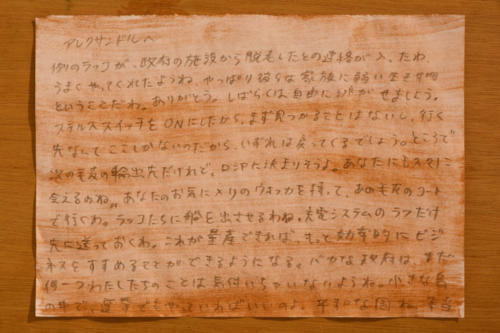 アレクサンドルへ
例のラッコが、政府の施設から脱走したとの連絡が入ったわ。
うまくやってくれたようね。やっぱり
家族に弱い生き物
ということだわ。ありがとう。しばらくは自由に泳がせましょう。
ステルススイッチをONにしたから、まず見つかることはないし、行く
先なんてここしかないのだから、いずれは戻ってくるでしょう。ところで
次の毛皮の輸出先だけれど、ロシアに決まりそうよ。あなたにもスグに
会えるのね。あなたのお気に入りのウォッカを持って、あの毛皮のコート
で行くわ。ラッコたちに船を出させるわね。充電システムのラフだけ
先に送っておくわ。これが量産できれば、もっと効率的にビジ
ネスをすすめることができるようになる。バカな政府は、まだ
何一つわたしたちのことは気付いちゃいないようね。小さな島
の中で、
でもやっていればいいのよ。平和な国ね、